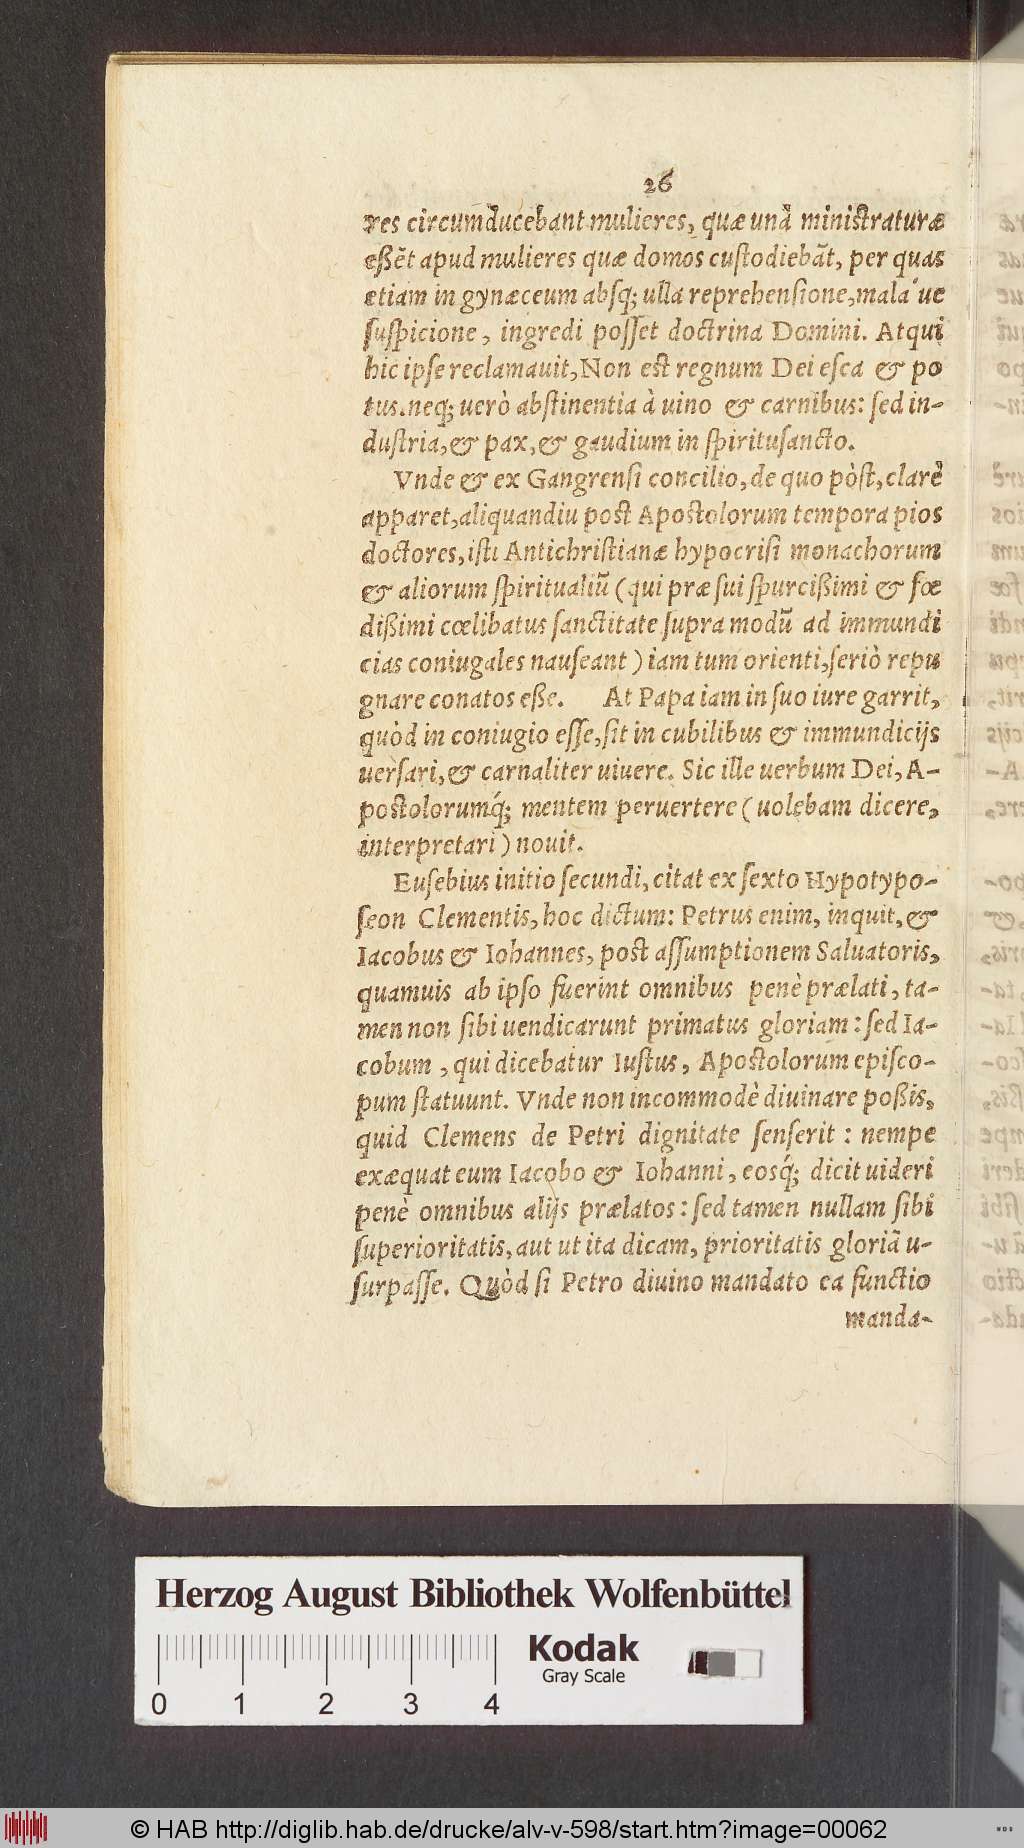 26
res circumducebant mulieres, quæ unà ministraturæ
eßẽt apud mulieres quæ domos custodiebãt, per quas
etiam in gynæceum absq; ulla reprehensione, mala´ue
suspicione, ingredi posset doctrina Domini. Atqui
hic ipse reclamauit, Non est regnum Dei esca & po
tus. neq; uerò abstinentia à uino & carnibus: sed in-
dustria, & pax, & gaudium in spiritusancto.
Vnde & ex Gangrensi concilio, de quo pòst, clarè
apparet, aliquandiu post Apostolorum tempora pios
doctores, isti Antichristianæ hypocrisi monachorum
& aliorum spiritualiũ (qui præ sui spurcißimi & fœ
dißimi cœlibatus sanctitate supra modũ ad immundi
cias coniugales nauseant) iam tum orienti, seriò repu
gnare conatos eße. At Papa iam in suo iure garrit,
quòd in coniugio esse, sit in cubilibus & immundicijs
uersari, & carnaliter uiuere. Sic ille uerbum Dei, A-
postolorumq́; mentem peruertere (uolebam dicere,
interpretari) nouit.
Eusebius initio secundi, citat ex sexto Hypotypo-
seon Clementis, hoc dictum: Petrus enim, inquit, &
Iacobus & Iohannes, post assumptionem Saluatoris,
quamuis ab ipso fuerint omnibus penè prælati, ta-
men non sibi uendicarunt primatus gloriam: sed Ia-
cobum, qui dicebatur Iustus, Apostolorum episco-
pum statuunt. Vnde non incommodè diuinare poßis,
quid Clemens de Petri dignitate senserit: nempe
exæquat eum Iacobo & Iohanni, eosq́; dicit uideri
penè omnibus alijs prælatos: sed tamen nullam sibi
superioritatis, aut ut ita dicam, prioritatis gloriã u-
surpasse. Quòd si Petro diuino mandato ea functio
manda-
Herzog August Bibliothek Wolfenbüttel
Kodak
Gray Scale
0 1 2 3 4
© HAB http://diglib.hab.de/drucke/alv-v-598/start.htm?image=00062